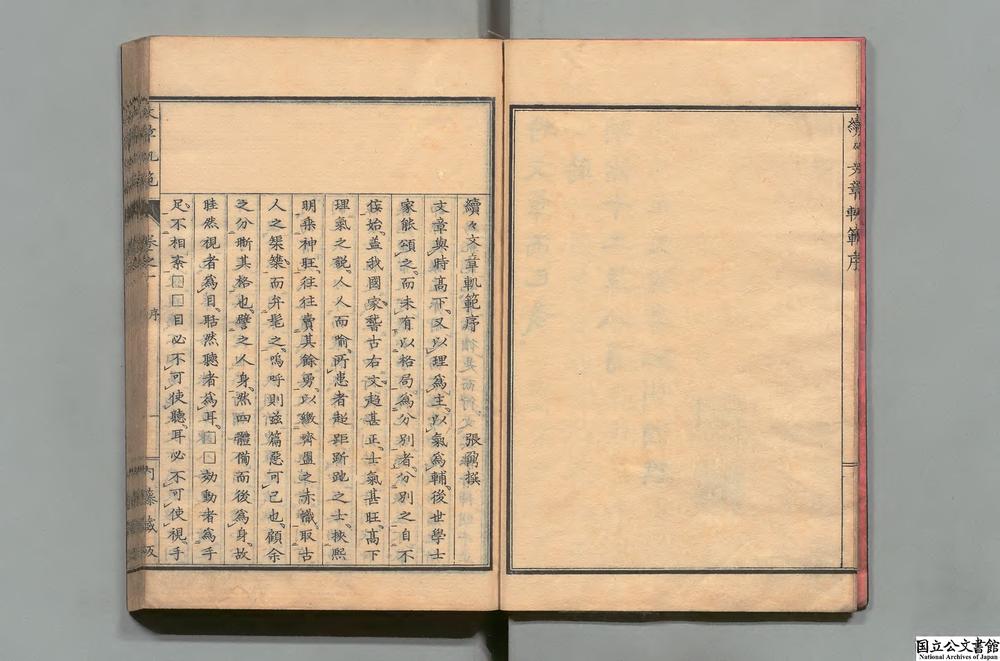 續々文章軌範序
續々文章軌範序
張鵞撰
文章與時高下又以理爲主以氣爲輔後世學士
家能頌之而未有以格局爲分別者分別之自不
侫始蓋我國家稽古右文趨甚正士氣甚旺高下
理氣之說人人而喻所患者超距跅跪之士挾熙
明乘神旺往往賣其餘勇以繳齊盟之赤幟取古
人之榘矱而弁髦之嗚呼則茲篇惡可已也顧余
之分斷其格也譬之人身然四體備而後爲身故
眭然視者爲目聒然聽者爲耳□□劾動者爲手
足不相紊□□目必不可使聽耳必不可使視手
文章軌範
卷之一
序
内藤藏版
国立公文書館
National Archives of Japan